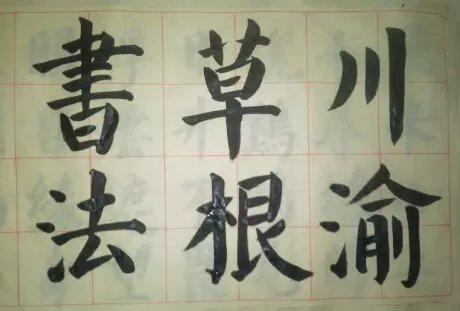 川渝
草根
書法